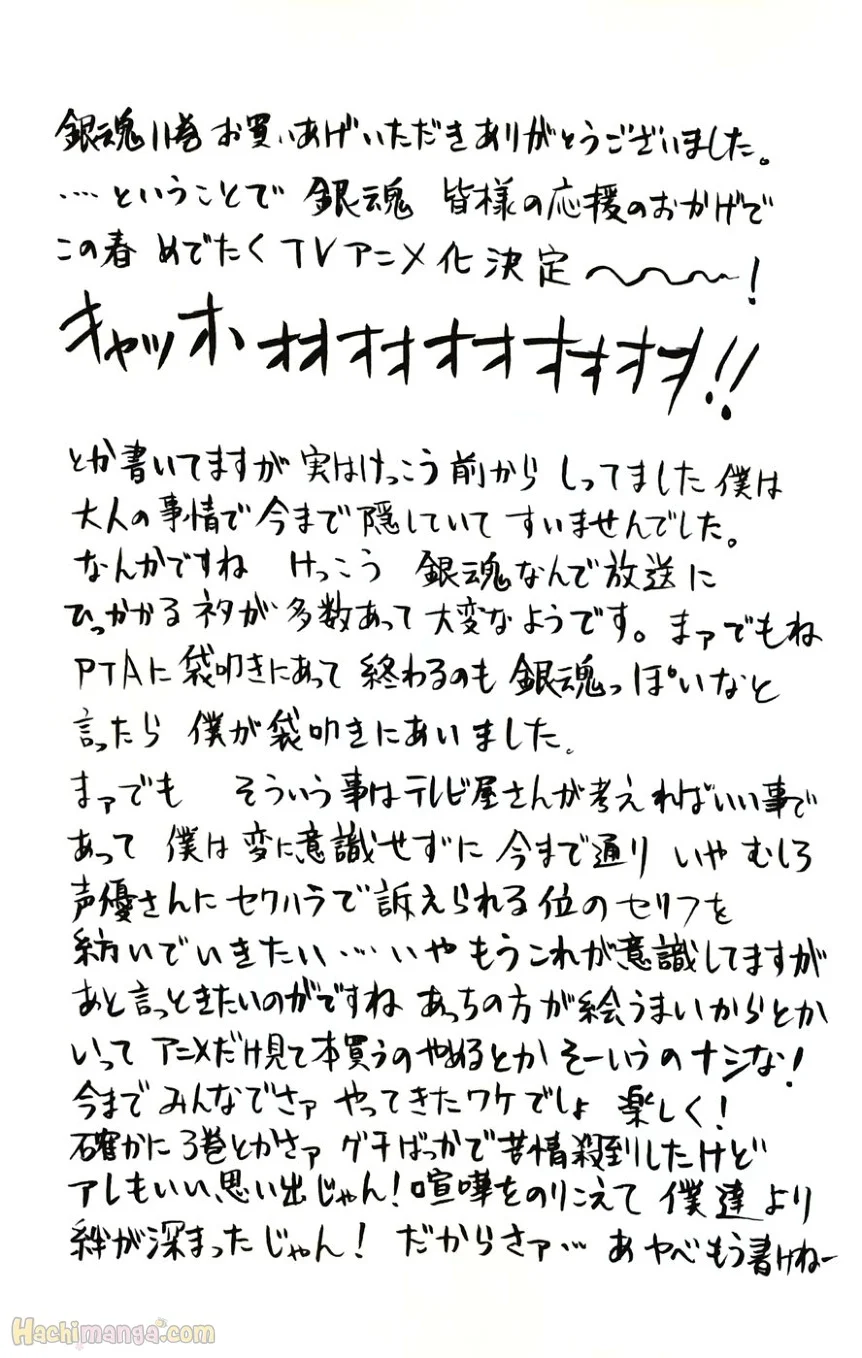 銀魂11巻 お買いあげいただきありがとうございました。
…ということで 銀魂 皆様の応援のおかげで
この春 めでたくTVアニメ化決定〜〜〜!
キャッホォオオオオオオオオオ!!
とか書いてますが 実はけっこう前から しってました 僕は
大人の事情で今まで隠していて すいませんでした。
なんかですね けっこう 銀魂なんで放送に
ひっかかるネタが多数あって大変なようです。まァでもね
PTAに袋叩きにあって 終わるのも 銀魂っぽいなと
言ったら 僕が袋叩きにあいました。
まァでも そういう事はテレビ屋さんが考えればいい事で
あって 僕は変に意識せずに 今まで通り いや むしろ
声優さんにセクハラで訴えられる位のセリフを
紡いでいきたい…いや もうこれが意識してますが
あと言っときたいのがですね あっちの方が絵うまいからとか
いって アニメだけ見て本買うのやめるとか そーいうのナシな!
今までみんなでさァ やってきたワケでしょ 楽しく!
確かに 3巻とかさァ グチばっかで苦情殺到したけど
アレもいい思い出じゃん!喧嘩をのりこえて 僕達 より
絆が深まったじゃん! だからさァ… あ やべ もう書けねー
Hachimanga.com